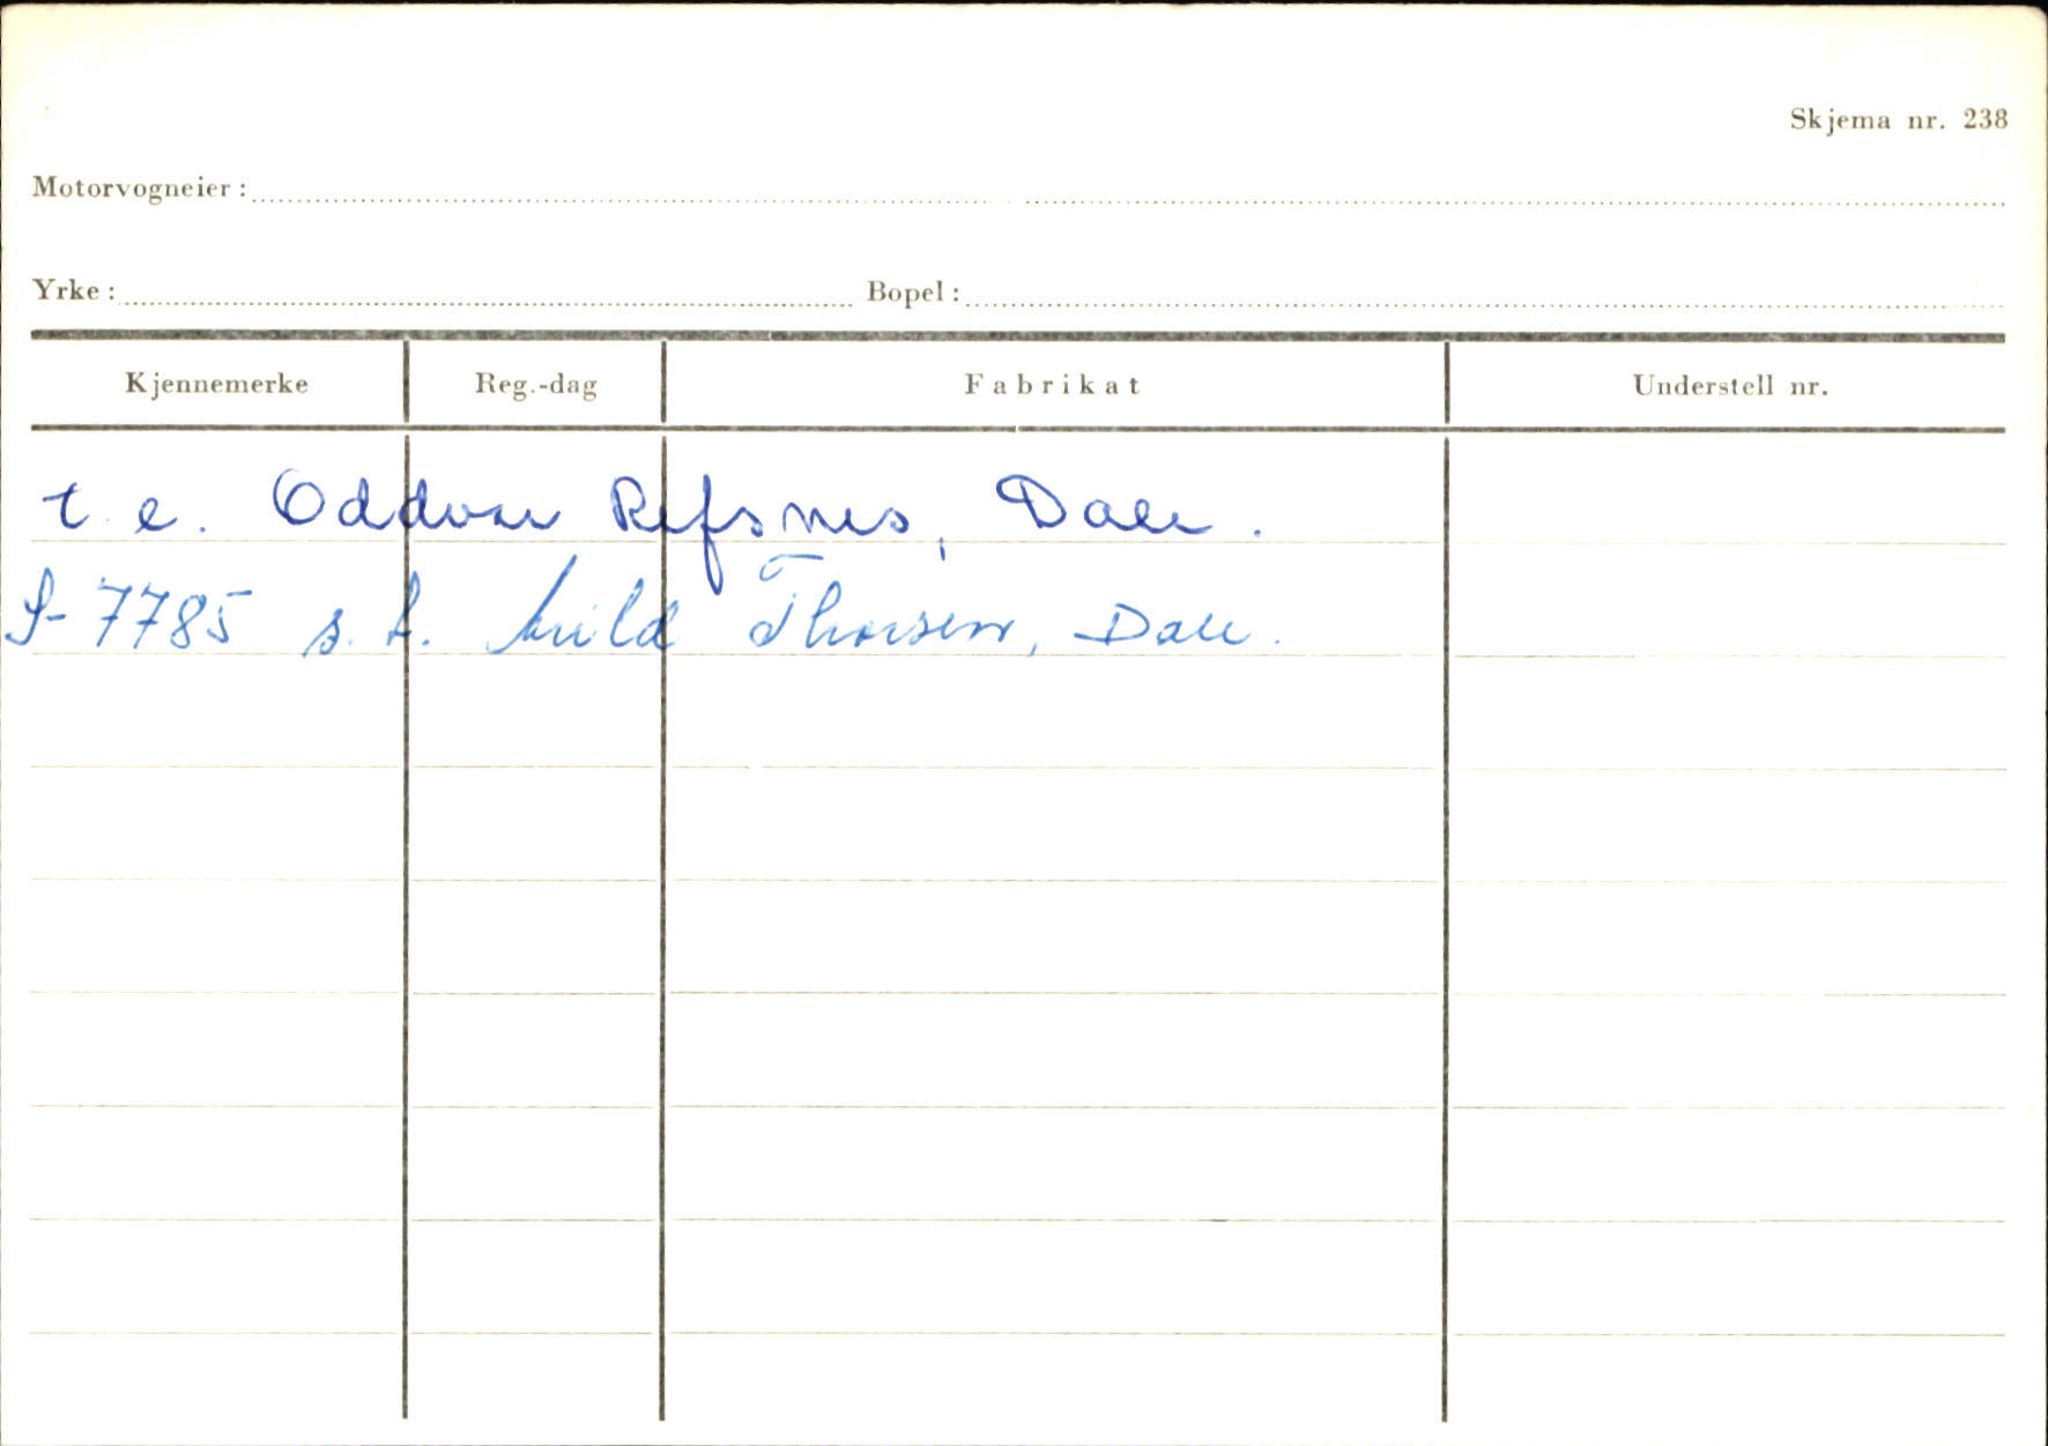 Skjema nr. 238
Motorvogneier:
Yrke: Bopel:
Kjennemerke Reg.-dag Fabrikat Understell nr.
t.e. Oddvar Refsnes, Dale.
S-7785 s.t. Arild Thorsen, Dale.